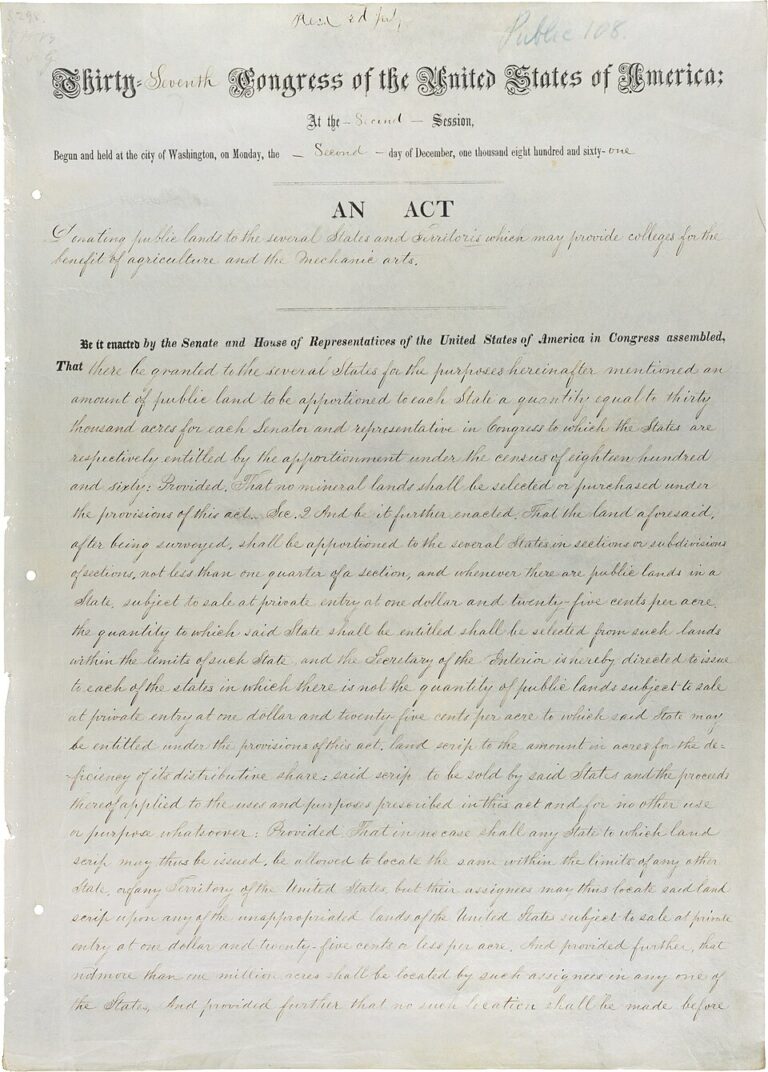 Public 108.
Thirty-Seventh Congress of the United States of America;
At the - Second - Session,
Begun and held at the city of Washington, on Monday, the - Second - day of December, one thousand eight hundred and sixty-one
AN ACT
Donating public lands to the several States and Territoris which may provide colleges for the
benefit of agriculture and the Mechanic arts.
Be it enacted by the Senate and House of Representatives of the United States of America in Congress assembled,
That there be granted to the several States for the purposes hereinafter mentioned an
amount of public land to be apportioned to each State a quantity equal to thirty
thousand acres for each Senator and representative in Congress to which the States are
respectively entitled by the apportionment under the census of eighteen hundred
and sixty: Provided. That no mineral lands shall be selected or purchased under
the provisions of this act. Sec. 2 And be it further enacted. That the land aforesaid,
after being surveyed, shall be apportioned to the several States in sections or subdivisions
of sections, not less than one quarter of a section, and whenever there are public lands in a
State, subject to sale at private entry at one dollar and twenty-five cents per acre,
the quantity to which said State shall be entitled shall be selected from such lands
within the limits of such State, and the Secretary of the Interior is hereby directed to issue
to each of the states in which there is not the quantity of public lands subject to sale
at private entry at one dollar and twenty five cents per acre to which said State may
be entitled under the provisions of this act, land scrip to the amount in acres for the de-
ficiency of its distributive share: said scrip to be sold by said States and the proceeds
thereof applied to the uses and purposes prescribed in this act and for no other use
or purpose whatsoever: Provided. That in no case shall any State to which land
scrip may thus be issued, be allowed to locate the same within the limits of any other
State, or of any Territory of the United States, but their assignees may thus locate said land
scrip upon any of the unappropriated lands of the United States subject to sale at private
entry at one dollar and twenty-five cents or less per acre. And provided further, that
not more than one million acres shall be located by such assignees in any one of
the States. And provided further that no such location shall be made before